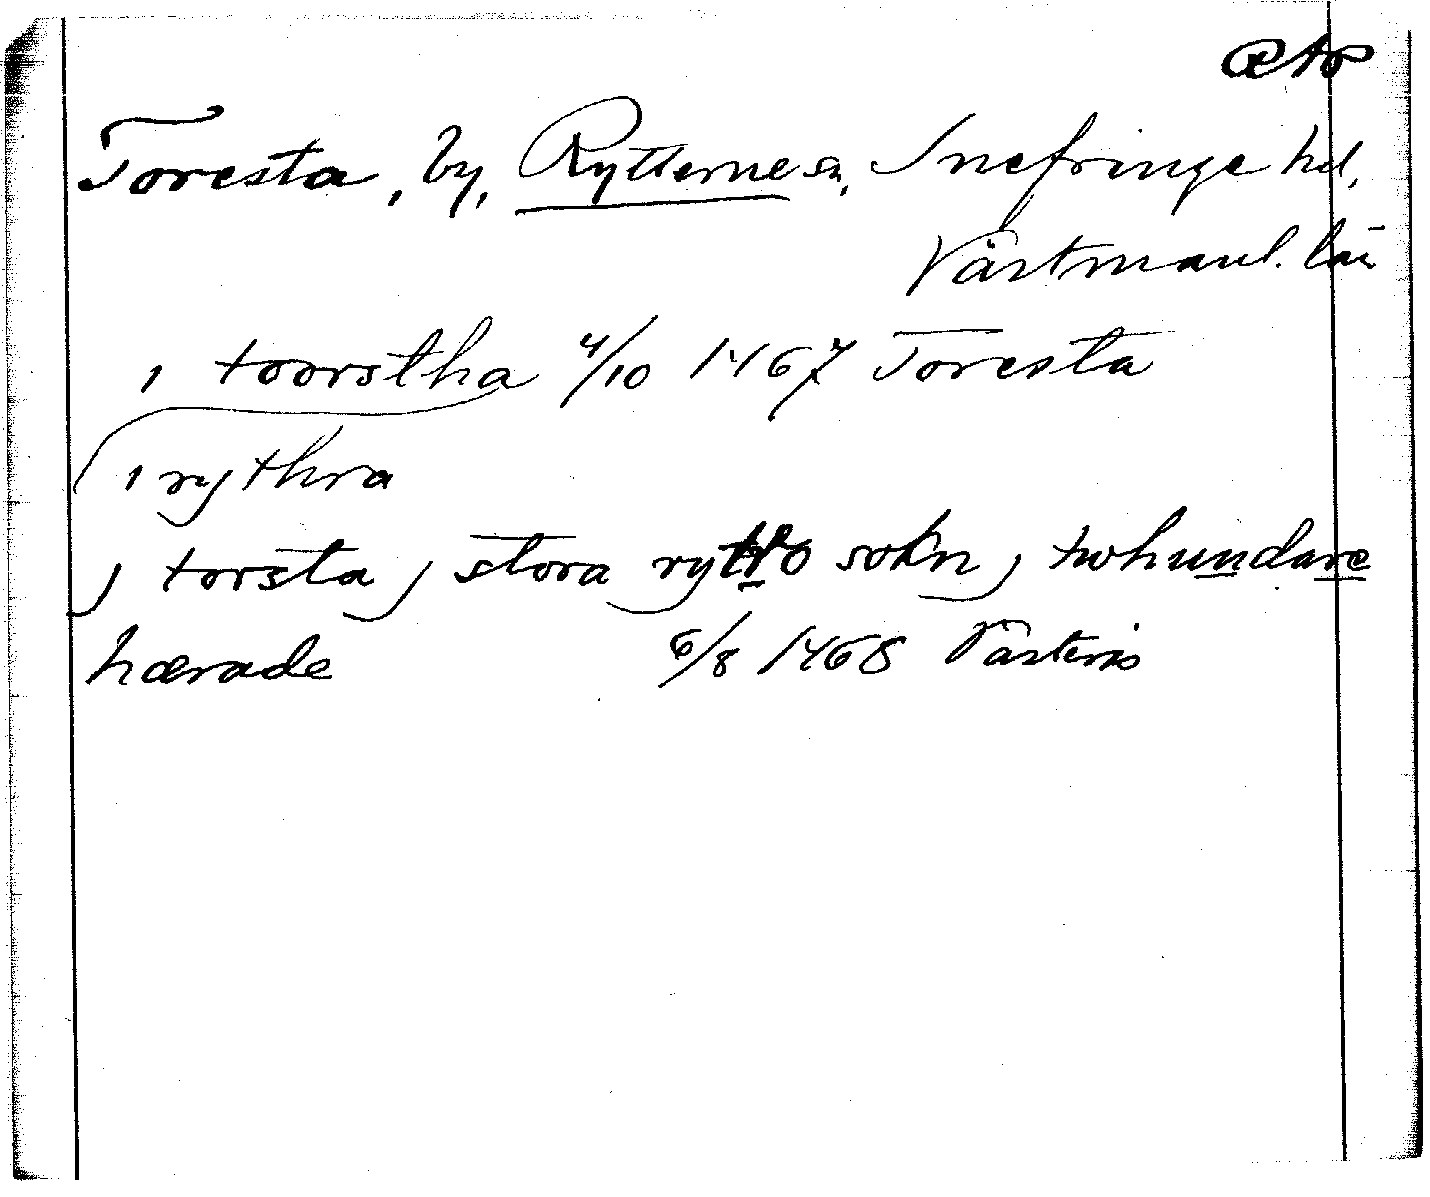 Toresta, by, Rytterne sn, Snefringe hd,
Västmanl. län
i toorstha 4/10 1467 Toresta
i rythra
j torsta j stora ryttro sokn j twhundare
hærade 6/8 1468 Västerås